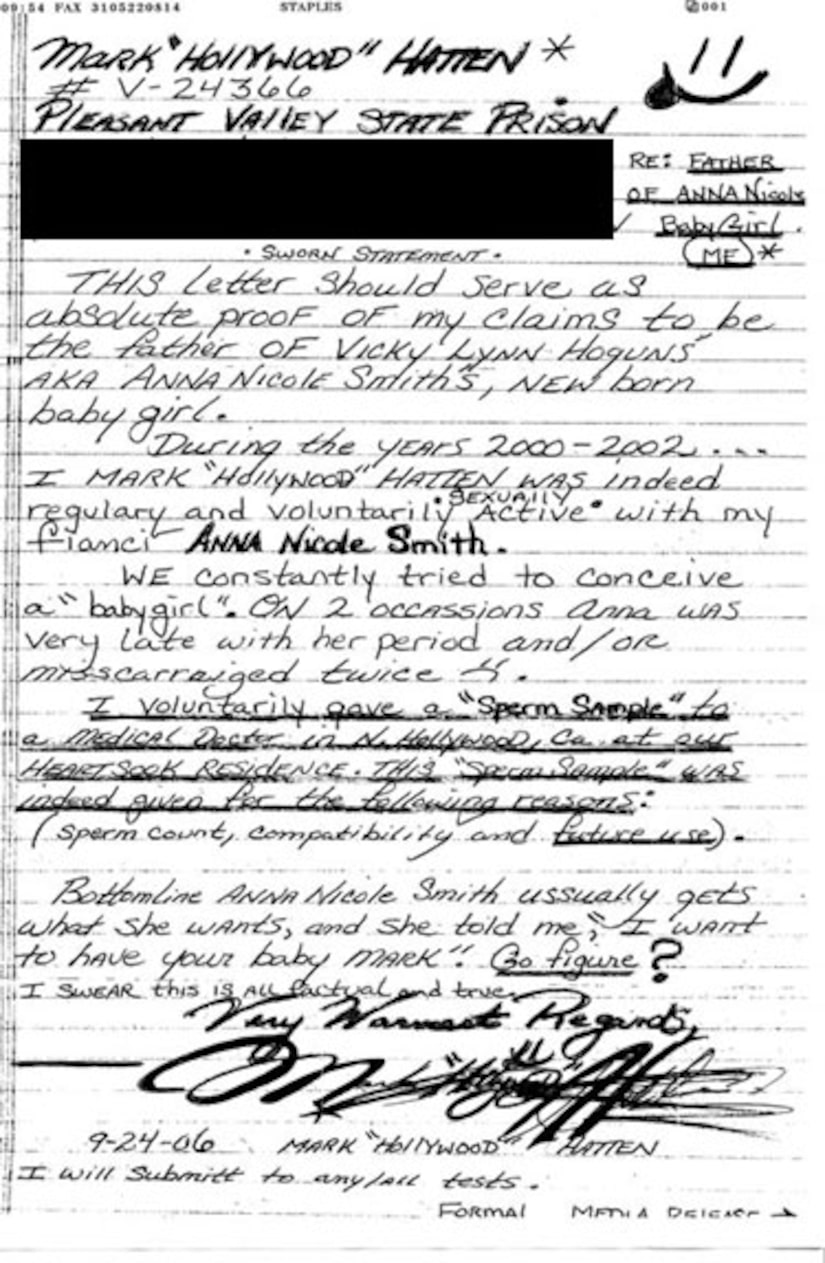 09:54 FAX 3105220814 STAPLES 001
MARK "HOllYWOOD" HATTEN *
# V-24366
PLEASANT VAllEY STATE PRISON
RE: FATHER
OF ANNA Nicole
Baby Girl.
(ME)*
• SWORN STATEMENT •
THIS Letter Should Serve as
absolute proof OF my claims to be
the father OF VICKY LYNN HOGUNS
AKA ANNA NICOLE Smith's, NEW born
baby girl.
During the YEARS 2000-2002....
I MARK "HollYWOOD" HATTEN WAS indeed
regulary and voluntarily • SEXUALLY Active • with my
fianci ANNA Nicole Smith.
WE constantly tried to conceive
a "babygirl". ON 2 occassions Anna was
very late with her period and/or
misscarraiged twice.
I voluntarily gave a "Sperm Sample" to
a MEDICAL Doctor in N. Hollywood, Ca. at our
HEARTSOOK RESIDENCE. THIS "Sperm Sample" WAS
indeed given for the following reasons:
(Sperm count, compatibility and future use).
Bottomline ANNA Nicole Smith ussually gets
what she wants, and she told me, "I want
to have your baby MARK". Go figure?
I SWEAR this is All factual and true.
Very Warmest Regards,
9-24-06 MARK "HOllYWOOD" HATTEN
I will Submitt to any/all tests.
FORMAl MEDIA RELEASE →